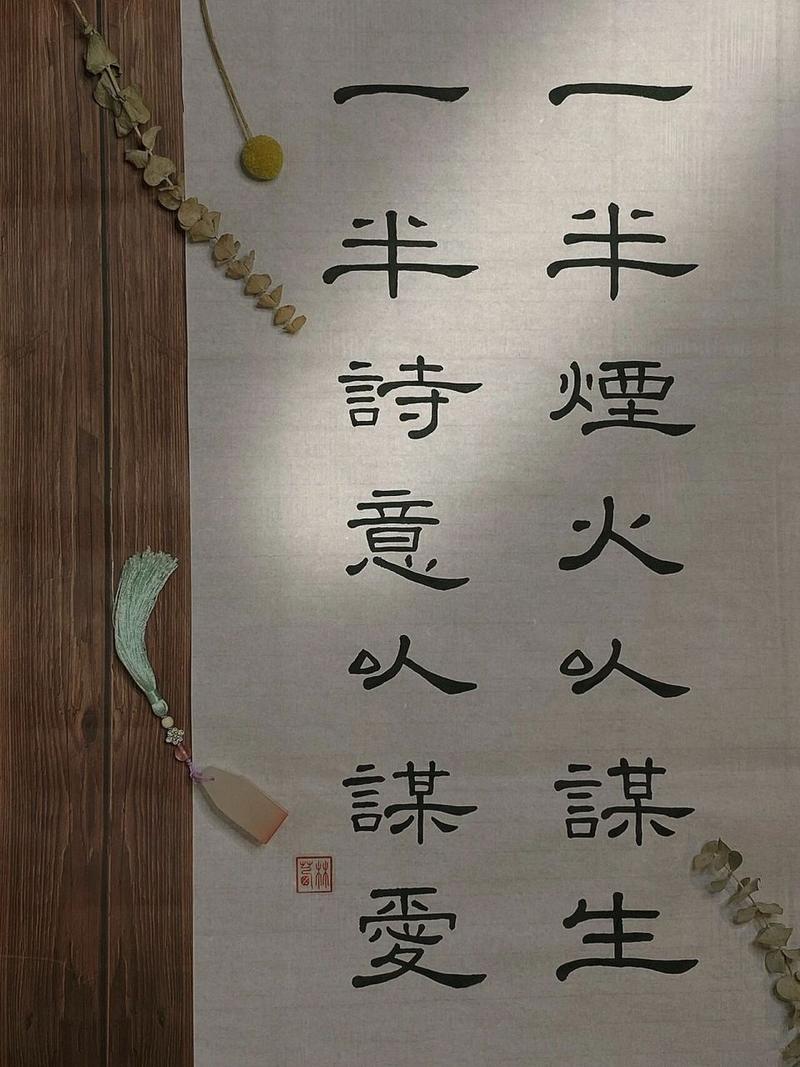 一半煙火㠯謀生
一半詩意㠯謀愛